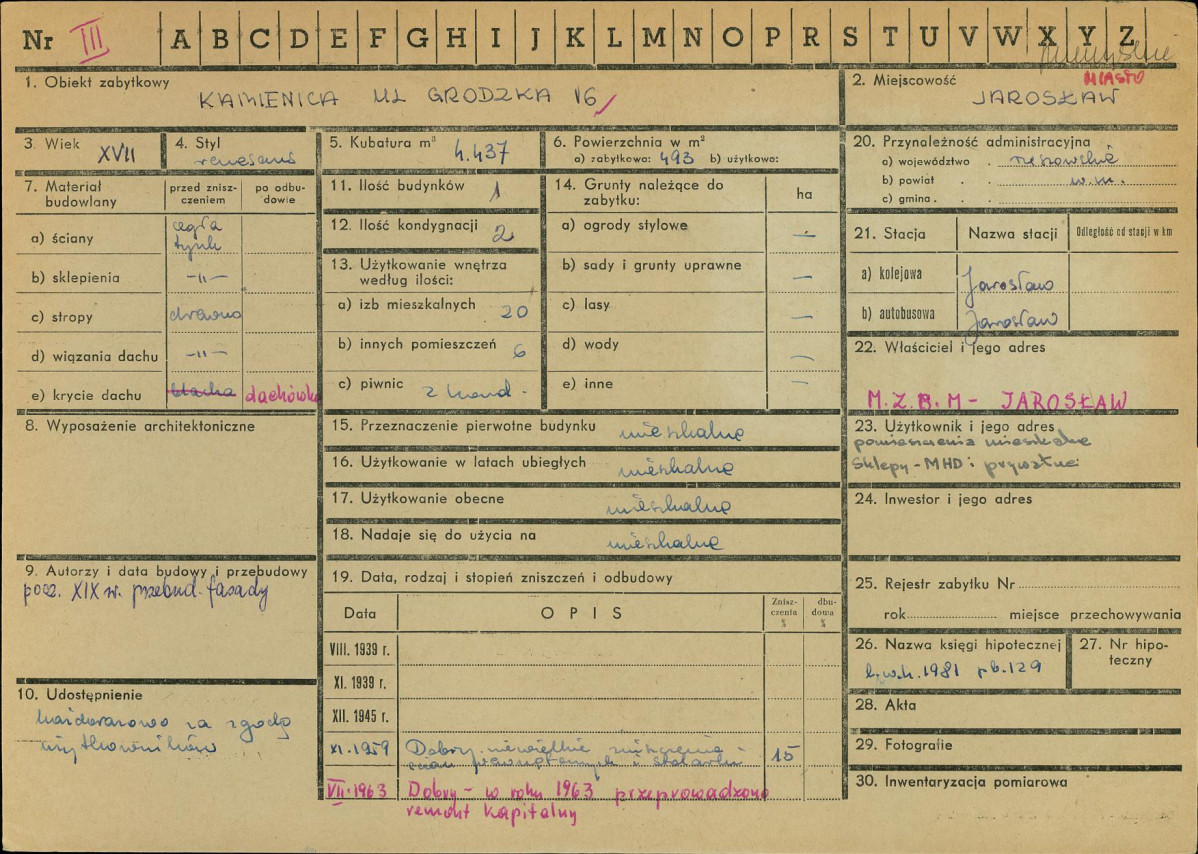 Nr III A B C D E F G H I J K L M N O P R S T U V W X Y Z
1. Obiekt zabytkowy
KAMIENICA UL GRODZKA 16
2. Miejscowość
MIASTO
JAROSŁAW
3. Wiek XVII
4. Styl
renesans
5. Kubatura m³ 4.437
6. Powierzchnia w m²
a) zabytkowa: 493 b) użytkowa:
7. Materiał budowlany
przed znisz-
czeniem
po odbu-
dowie
a) ściany cegła
tynk
b) sklepienia —„—
c) stropy drewno
d) wiązania dachu —„—
e) krycie dachu blacha dachówka
8. Wyposażenie architektoniczne
9. Autorzy i data budowy i przebudowy
pocz. XIX w. przebud. fasady
10. Udostępnienie
każdorazowo za zgodą
użytkowników
11. Ilość budynków 1
12. Ilość kondygnacji 2
13. Użytkowanie wnętrza
według ilości:
a) izb mieszkalnych 20
b) innych pomieszczeń 6
c) piwnic 2 kond.
14. Grunty należące do
zabytku:
ha
a) ogrody stylowe —
b) sady i grunty uprawne —
c) lasy —
d) wody —
e) inne —
15. Przeznaczenie pierwotne budynku mieszkalne
16. Użytkowanie w latach ubiegłych mieszkalne
17. Użytkowanie obecne mieszkalne
18. Nadaje się do użycia na mieszkalne
19. Data, rodzaj i stopień zniszczeń i odbudowy
Data OPIS
Znisz-
czenia
%
dbu-
dowa
%
VIII. 1939 r.
XI. 1939 r.
XII. 1945 r.
XI. 1959 Dobry. niewielkie zniszczenia -
i stolarki 15
VII. 1963 Dobry - w roku 1963 przeprowadzono
remont kapitalny
20. Przynależność administracyjna
a) województwo . rzeszowskie
b) powiat . . w.m.
c) gmina . .
21. Stacja Nazwa stacji Odległość od stacji w km
a) kolejowa Jarosław
b) autobusowa Jarosław
22. Właściciel i jego adres
M.Z.B.M - JAROSŁAW
23. Użytkownik i jego adres
pomieszczenia mieszkalne
Sklepy - MHD i prywatne
24. Inwestor i jego adres
25. Rejestr zabytku Nr
rok miejsce przechowywania
26. Nazwa księgi hipotecznej
l.w.h. 1981 pb. 129
27. Nr hipo-
teczny
28. Akta
29. Fotografie
30. Inwentaryzacja pomiarowa